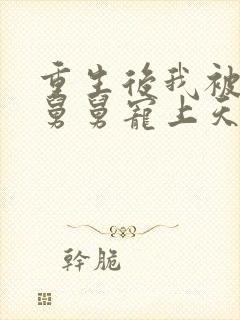 重生後我被
舅舅寵上天
幹脆